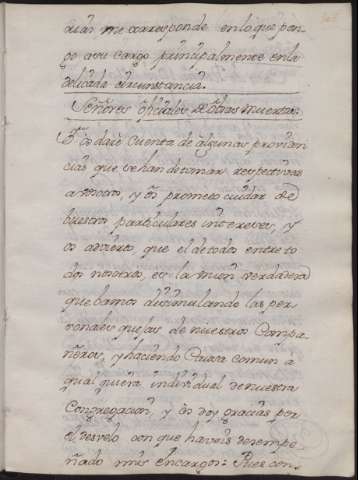 duas me corresponde en lo que pon-
go a su cargo principalmente en la
delicada circunstancia.
Señores oficiales de obras muertas.
os daré cuenta de algunas providen
cias que se han de tomar respectivas
a vosotros, y os prometo cuidar de
buestros particulares intereses, y
os advierto, que el de todos entre to
dos nosotros, es la union verdadera
que bamos disimulando las per-
sonales quejas de nuestros Compa-
ñeros, y haciendo Causa comun a
qual quiera individual de nuestra
Congregacion, y os doy gracias por
el desvelo con que haveis desempe-
ñado mis encargos: Pues con-